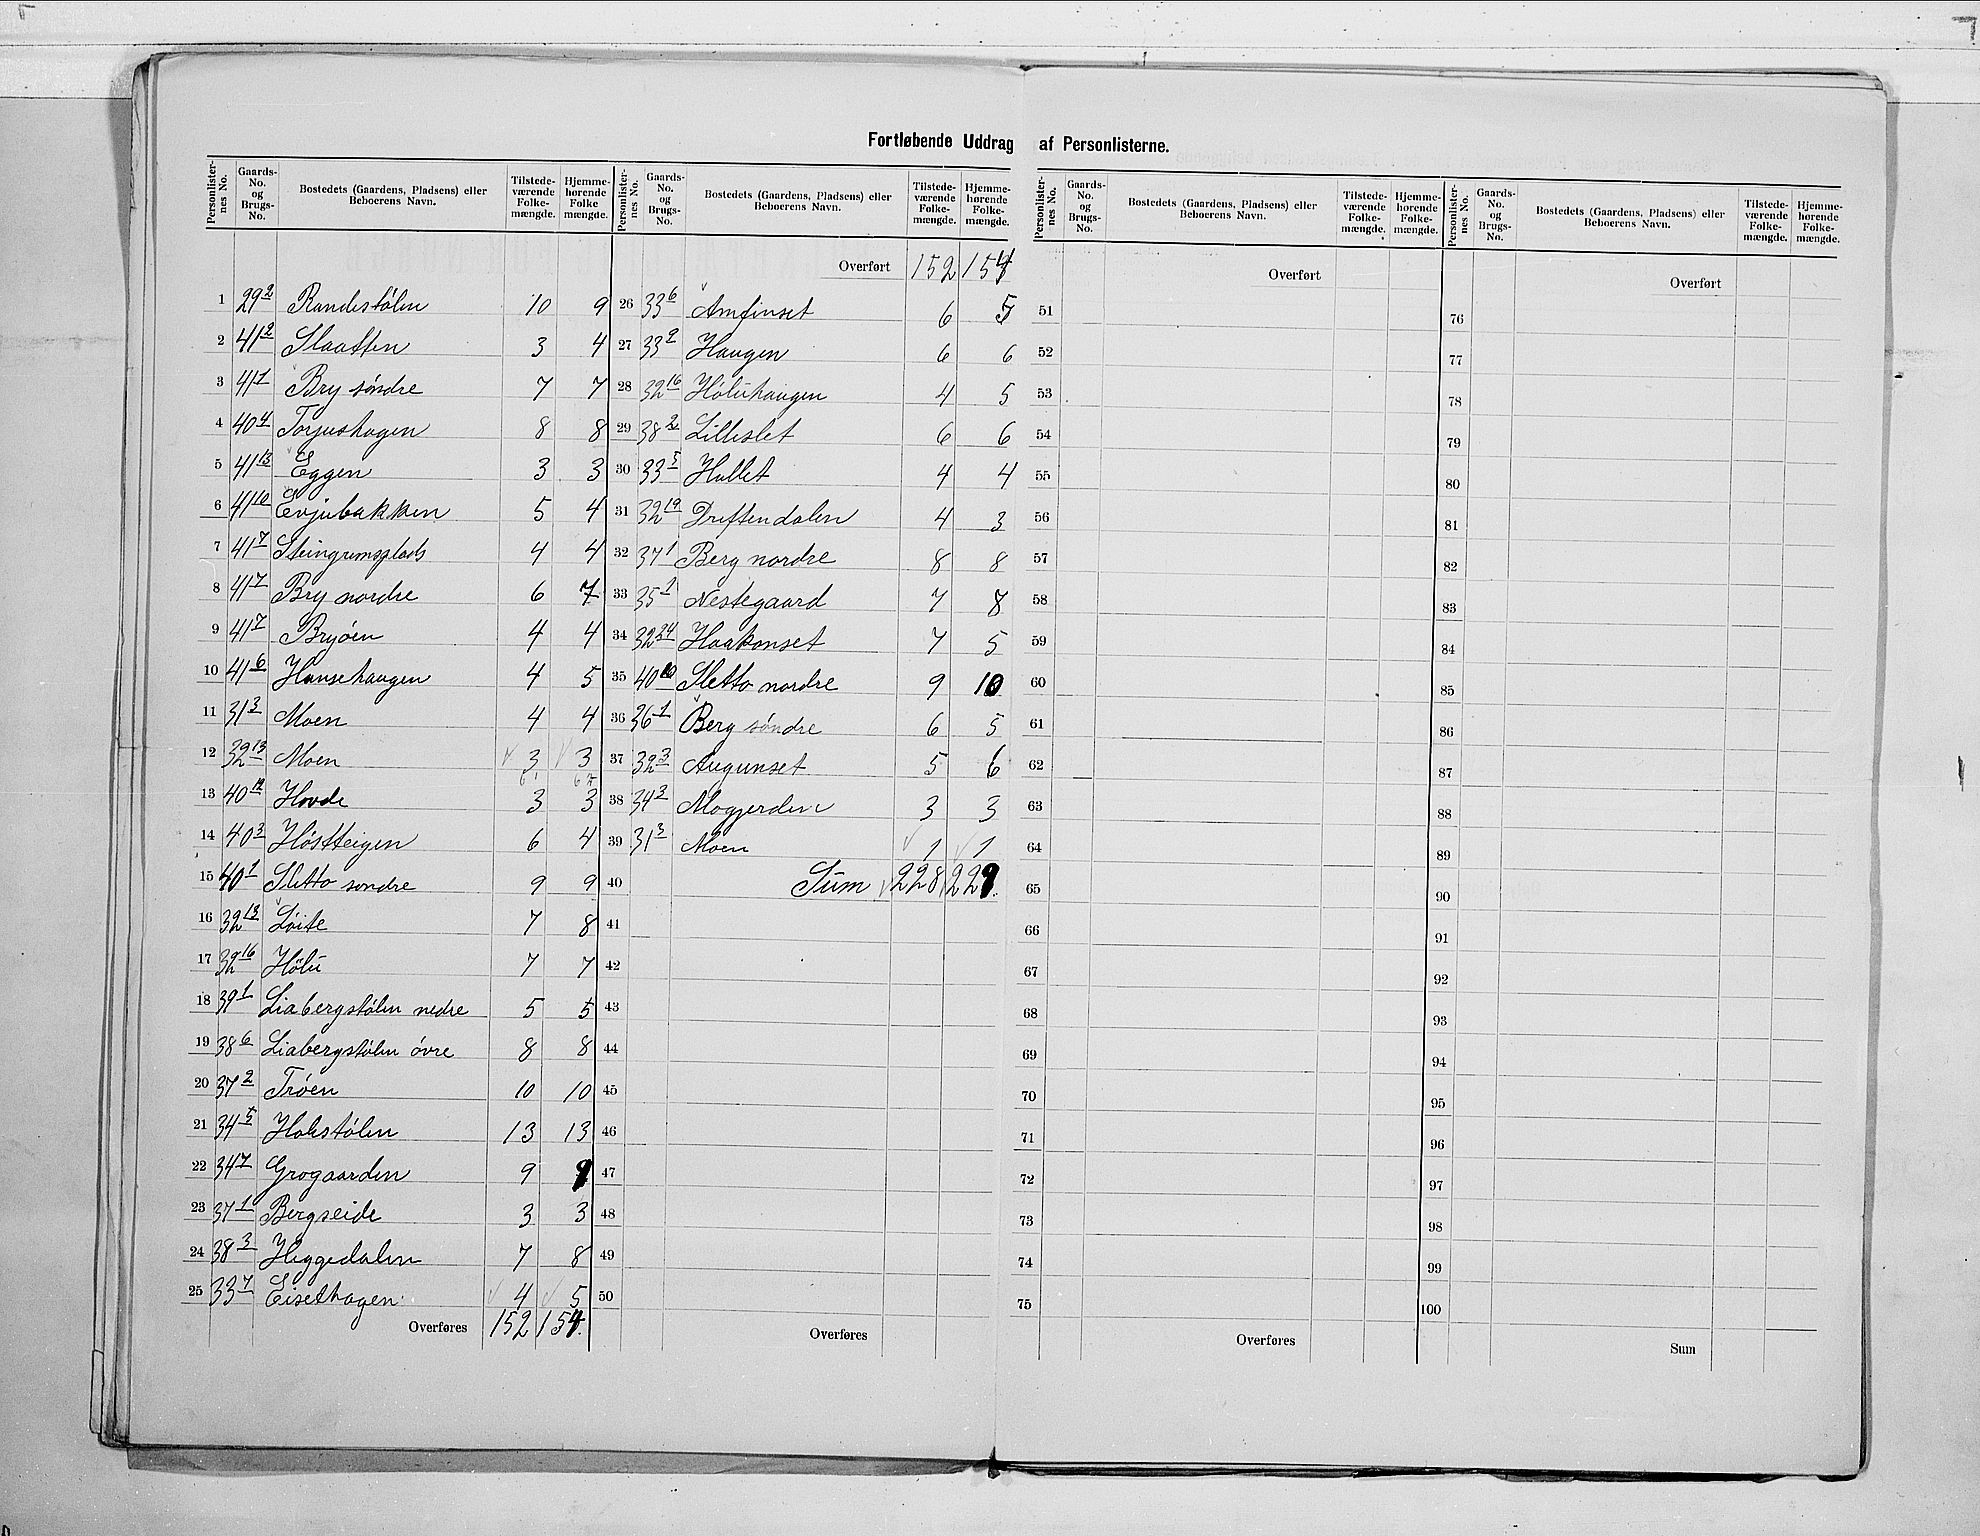 Fortløbende Uddrag af Personlisterne.
Personlister-nes No. Gaards-No. og Brugs-No. Bostedets (Gaardens, Pladsens) eller Beboerens Navn. Tilstede-værende Folke-mængde. Hjemme-hørende Folke mængde.
1 29 2 Randestölen 10 9
2 41 2 Slaatten 3 4
3 41 1 Bry söndre 7 7
4 40 4 Torjushagen 8 8
5 41 13 Eggen 3 3
6 41 10 Evjubakken 5 4
7 41 7 Steingrimsplads 4 4
8 41 7 Bry nordre 6 7
9 41 7 Bryöen 4 4
10 41 6 Hansehaugen 4 5
11 31 3 Moen 4 4
12 32 13 Moen 3 3
13 40 12 Hovde 3 3
14 40 3 Höstteigen 6 4
15 40 1 Sletto söndre 9 9
16 32 13 Löite 7 8
17 32 16 Hölu 7 7
18 39 1 Liabergstölen nedre 5 5
19 38 6 Liabergstölen övre 8 8
20 37 2 Tröen 10 10
21 34 5 Holestölen 13 13
22 34 7 Grogaarden 9 9
23 37 1 Bergseide 3 3
24 38 3 Heggedalen 7 8
25 33 7 Eisethagen 4 5
Overføres 152 154
Personlister-nes No. Gaards-No. og Brugs-No. Bostedets (Gaardens, Pladsens) eller Beboerens Navn. Tilstede-værende Folke-mængde. Hjemme-hørende Folke-mængde.
Overført 152 154
26 33 6 Amfinset 6 5
27 33 2 Haugen 6 6
28 32 16 Höluhaugen 4 5
29 38 2 Lilleslet 6 6
30 33 5 Hullet 4 4
31 32 19 Driftendalen 4 3
32 37 1 Berg nordre 8 8
33 35 1 Nestegaard 7 8
34 32 24 Haakonset 7 5
35 40 10 Sletto nordre 9 10
36 36 1 Berg söndre 6 5
37 32 3 Augunset 5 6
38 34 3 Mogjerden 3 3
39 31 3 Moen 1 1
40 Sum 228 229
41
42
43
44
45
46
47
48
49
50
Overføres
Personlister-nes No. Gaards-No. og Brugs-No. Bostedets (Gaardens, Pladsens) eller Beboerens Navn. Tilstede-værende Folke-mængde. Hjemme-hørende Folke-mængde.
Overført
51
52
53
54
55
56
57
58
59
60
61
62
63
64
65
66
67
68
69
70
71
72
73
74
75
Overføres
Personlister-nes No. Gaards-No. og Brugs-No. Bostedets (Gaardens, Pladsens) eller Beboerens Navn. Tilstede-værende Folke-mængde. Hjemme-hørende Folke-mængde.
Overført
76
77
78
79
80
81
82
83
84
85
86
87
88
89
90
91
92
93
94
95
96
97
98
99
100
Sum